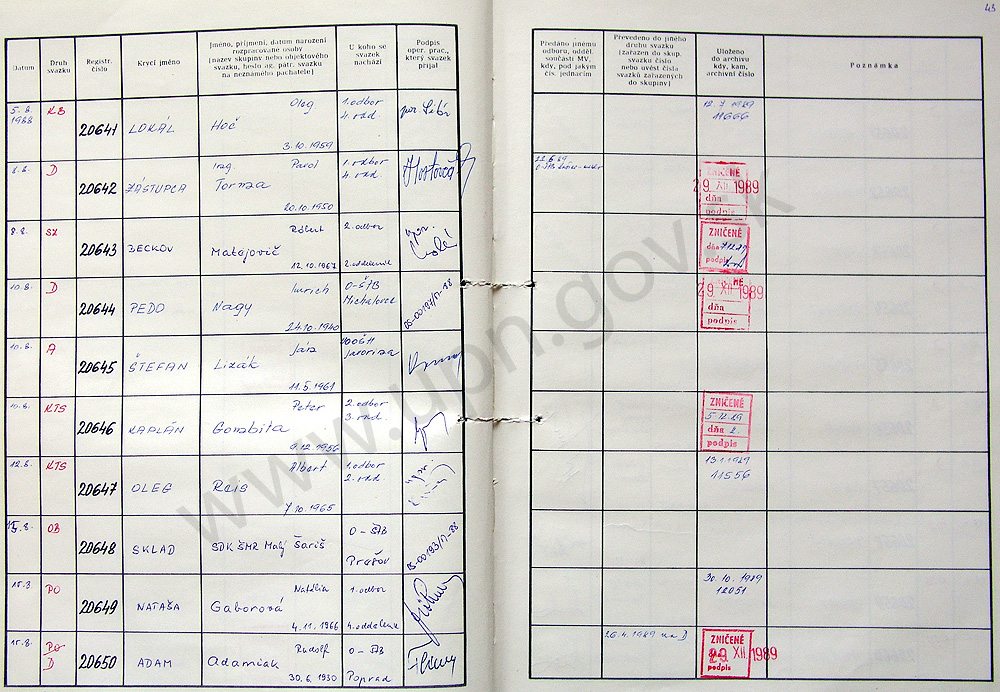 43
Datum
Druh svazku
Registr. číslo
Krycí jméno
Jméno, příjmení, datum narození
rozpracované osoby
(název skupiny nebo objektového
svazku, heslo ag. pátr. svazku
na neznámého pachatele)
U koho se
svazek
nachází
Podpis
oper. prac.,
který svazek
přijal
Předáno jinému
odboru, odděl.
součásti MV,
kdy, pod jakým
čís. jednacím
Převedeno do jiného
druhu svazku
(zařazen do skup.
svazku číslo
nebo uvést čísla
svazků zařazených
do skupiny)
Uloženo
do archivu
kdy, kam,
archivní číslo
Poznámka
5.8. 1988 KB 20641 LOKÁL Hoč Oleg 3.10.1959 1. odbor 4. odd.
12.7.1989
11666
8.8. D 20642 ZÁSTUPCA Ing. Pavol Torma 20.10.1950 1. odbor 4. odd.
ZNIČENÉ
29. XII. 1989
dňa
podpis
8.8. 20643 BECKOV Róbert Matejovič 12.10.1967 2. odbor 2. oddelenie
ZNIČENÉ
dňa
podpis
10.8. D 20644 PEDO Imrich Nagy 24.10.1940 O-ŠtB Michalovce
29. XII. 1989
dňa
podpis
10.8. A 20645 ŠTEFAN Ján Lizák 11.5.1961
20646 KAPLÁN KTS Peter Gombita 9.12.1956 2. odbor 3. odd.
ZNIČENÉ
5.12.89
dňa
podpis
12.8. KTS 20647 OLEG Albert Reis 7.10.1965 1. odbor 2. odd.
13.1.1989
11556
15.8. OB 20648 SKLAD SDK ŠMR Malý Šariš O-ŠtB Prešov
PO 20649 NATAŠA Natália Gaborová 4.11.1966 1. odbor 4. oddelenie
30.10.1989
12051
15.8. PO D 20650 ADAM Rudolf Adamiak 30.6.1930 O-ŠtB Poprad
26.4.1989 na D
ZNIČENÉ
29. XII. 1989
podpis
www.upn.gov.sk